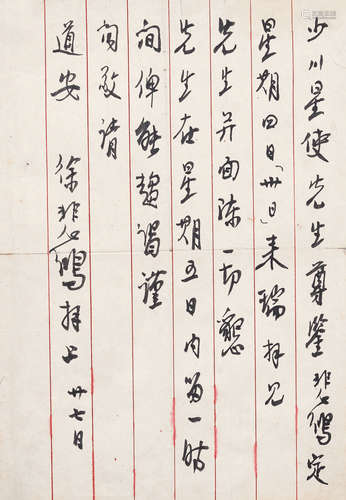 少川星使先生尊鉴非仁鴻定
星期四日「卅日」来瑞拜见
先生并面陈一切恳
先生在星期五日内留一时
间俾能趋谒谨
闻敬请
道安 徐非仁鴻拜上 廿七日